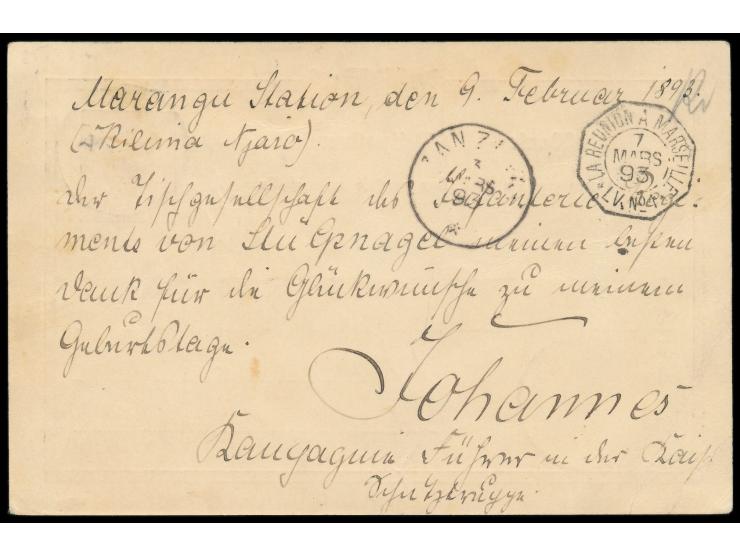 Marangu Station, den 9. Februar 1893.
(Kilima Njaro).
Der Tischgesellschaft des Infanterie Regi-
ments von Stülpnagel meinen besten
Dank für die Glückwünsche zu meinem
Geburtstage.
Johannes
Kompagnie Führer in der Kais.
Schutztruppe.
ZANZIBAR
3
MARS
93
LA REUNION A MARSEILLE
7
MARS
93
LV. No 2